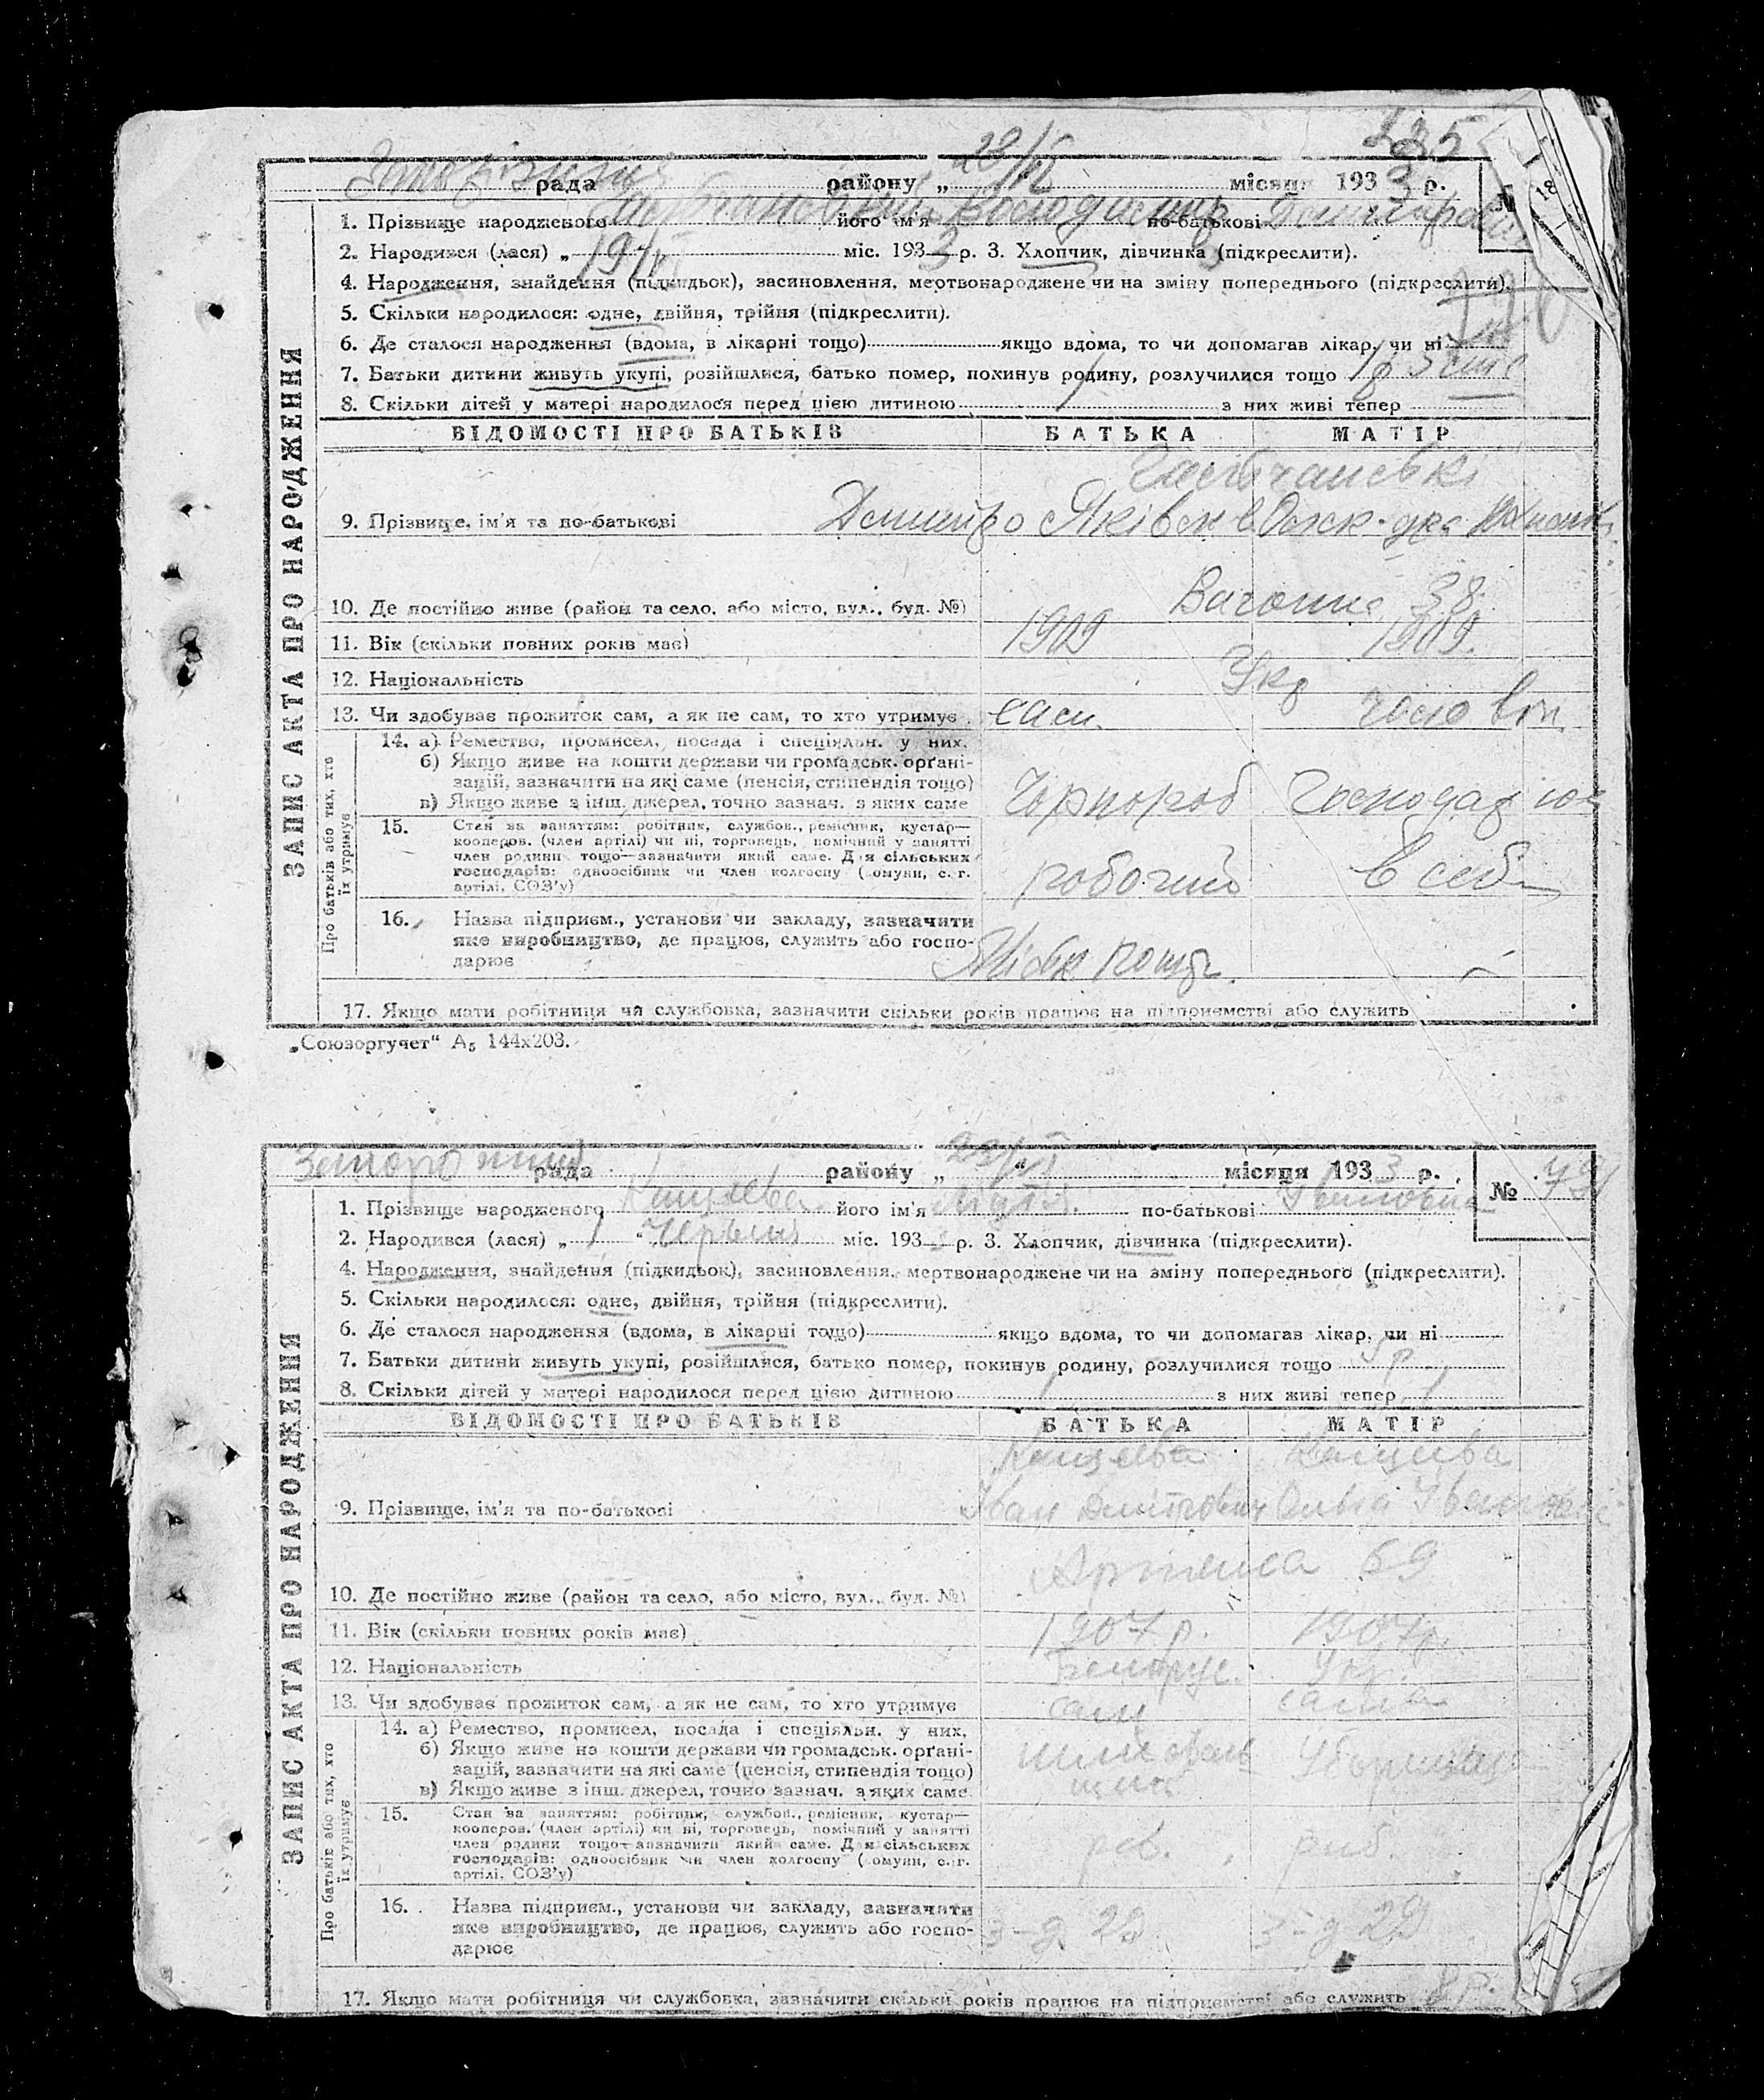 235
23/VI
рада району „ “ місяця 1933 р.
1. Прізвище народженого його ім'я Володимир по-батькові
2. Народився (лася) „ 19/ міс. 1933 р. 3. Хлопчик, дівчинка (підкреслити).
4. Народження, знайдення (підкидьок), засиновлення, мертвонароджене чи на зміну попереднього (підкреслити).
5. Скільки народилося: одне, двійня, трійня (підкреслити).
6. Де сталося народження (вдома, в лікарні тощо) якщо вдома, то чи допомагав лікар, чи ні
7. Батьки дитини живуть укупі, розійшлися, батько помер, покинув родину, розлучилися тощо
8. Скільки дітей у матері народилося перед цією дитиною 1 з них живі тепер
ЗАПИС АКТА ПРО НАРОДЖЕННЯ
ВІДОМОСТІ ПРО БАТЬКІВ БАТЬКА МАТІР
9. Прізвище, ім'я та по-батькові Дмитро Яківович
10. Де постійно живе (район та село, або місто, вул., буд. №) 38
11. Вік (скільки повних років має) 1909 1909
12. Національність Укр
13. Чи здобуває прожиток сам, а як не сам, то хто утримує сам
Про батьків або тих, хто їх утримує
14. а) Ремество, промисел, посада і спеціяльн. у них.
б) Якщо живе на кошти держави чи громадськ. орґані-
зацій, зазначити на які саме (пенсія, стипендія тощо)
в) Якщо живе з інш. джерел, точно зазнач. з яких саме Чорнороб
15. Стан за заняттям: робітник, службов., ремісник, кустар—
кооперов. (член артілі) чи ні, торговець, помічний у занятті
член родини тощо—зазначити який саме. Для сільських
господарів: одноосібник чи член колгоспу (комуни, с. г.
артілі, СОЗ'у) робочий в себе
16. Назва підприєм., установи чи закладу, зазначити
яке виробництво, де працює, служить або госпо-
дарює
17. Якщо мати робітниця чи службовка, зазначити скільки років працює на підприємстві або служить
„Союзоргучет“ А₅ 144х203.
рада району „ “ місяця 1933 р.
№
1. Прізвище народженого його ім'я по-батькові Івановна
2. Народився (лася) „ 1 “ Червня міс. 193 р. 3. Хлопчик, дівчинка (підкреслити).
4. Народження, знайдення (підкидьок), засиновлення, мертвонароджене чи на зміну попереднього (підкреслити).
5. Скільки народилося: одне, двійня, трійня (підкреслити).
6. Де сталося народження (вдома, в лікарні тощо) якщо вдома, то чи допомагав лікар, чи ні
7. Батьки дитини живуть укупі, розійшлися, батько помер, покинув родину, розлучилися тощо 5 р.
8. Скільки дітей у матері народилося перед цією дитиною 1 з них живі тепер 1
ЗАПИС АКТА ПРО НАРОДЖЕННЯ
ВІДОМОСТІ ПРО БАТЬКІВ БАТЬКА МАТІР
9. Прізвище, ім'я та по-батькові Іван Дмитрович Ольга
10. Де постійно живе (район та село, або місто, вул., буд. №) Артема 69
11. Вік (скільки повних років має) 1907 р. 1907 р.
12. Національність Білорус. Укр.
13. Чи здобуває прожиток сам, а як не сам, то хто утримує сам сама
Про батьків або тих, хто їх утримує
14. а) Ремество, промисел, посада і спеціяльн. у них.
б) Якщо живе на кошти держави чи громадськ. орґані-
зацій, зазначити на які саме (пенсія, стипендія тощо)
в) Якщо живе з інш. джерел, точно зазнач. з яких саме
15. Стан за заняттям: робітник, службов., ремісник, кустар—
кооперов. (член артілі) чи ні, торговець, помічний у занятті
член родини тощо—зазначити який саме. Для сільських
господарів: одноосібник чи член колгоспу (комуни, с. г.
артілі, СОЗ'у) роб. роб.
16. Назва підприєм., установи чи закладу, зазначити
яке виробництво, де працює, служить або госпо-
дарює з-д 29 з-д 29
17. Якщо мати робітниця чи службовка, зазначити скільки років працює на підприємстві або служить